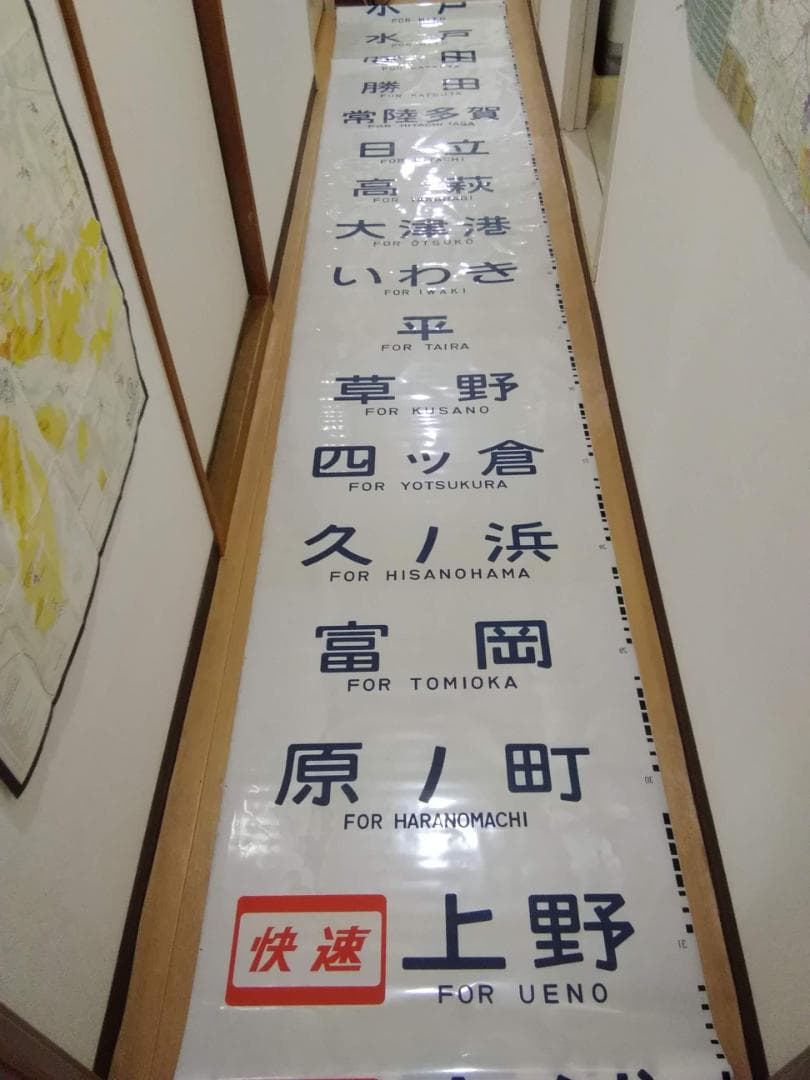 水戸
FOR MITO
水戸
勝田
FOR KATSUTA
常陸多賀
FOR HITACHI-TAGA
日立
FOR HITACHI
高萩
FOR TAKAHAGI
大津港
FOR ŌTSUKŌ
いわき
FOR IWAKI
平
FOR TAIRA
草野
FOR KUSANO
四ッ倉
FOR YOTSUKURA
久ノ浜
FOR HISANOHAMA
富岡
FOR TOMIOKA
原ノ町
FOR HARANOMACHI
快速 上野
FOR UENO